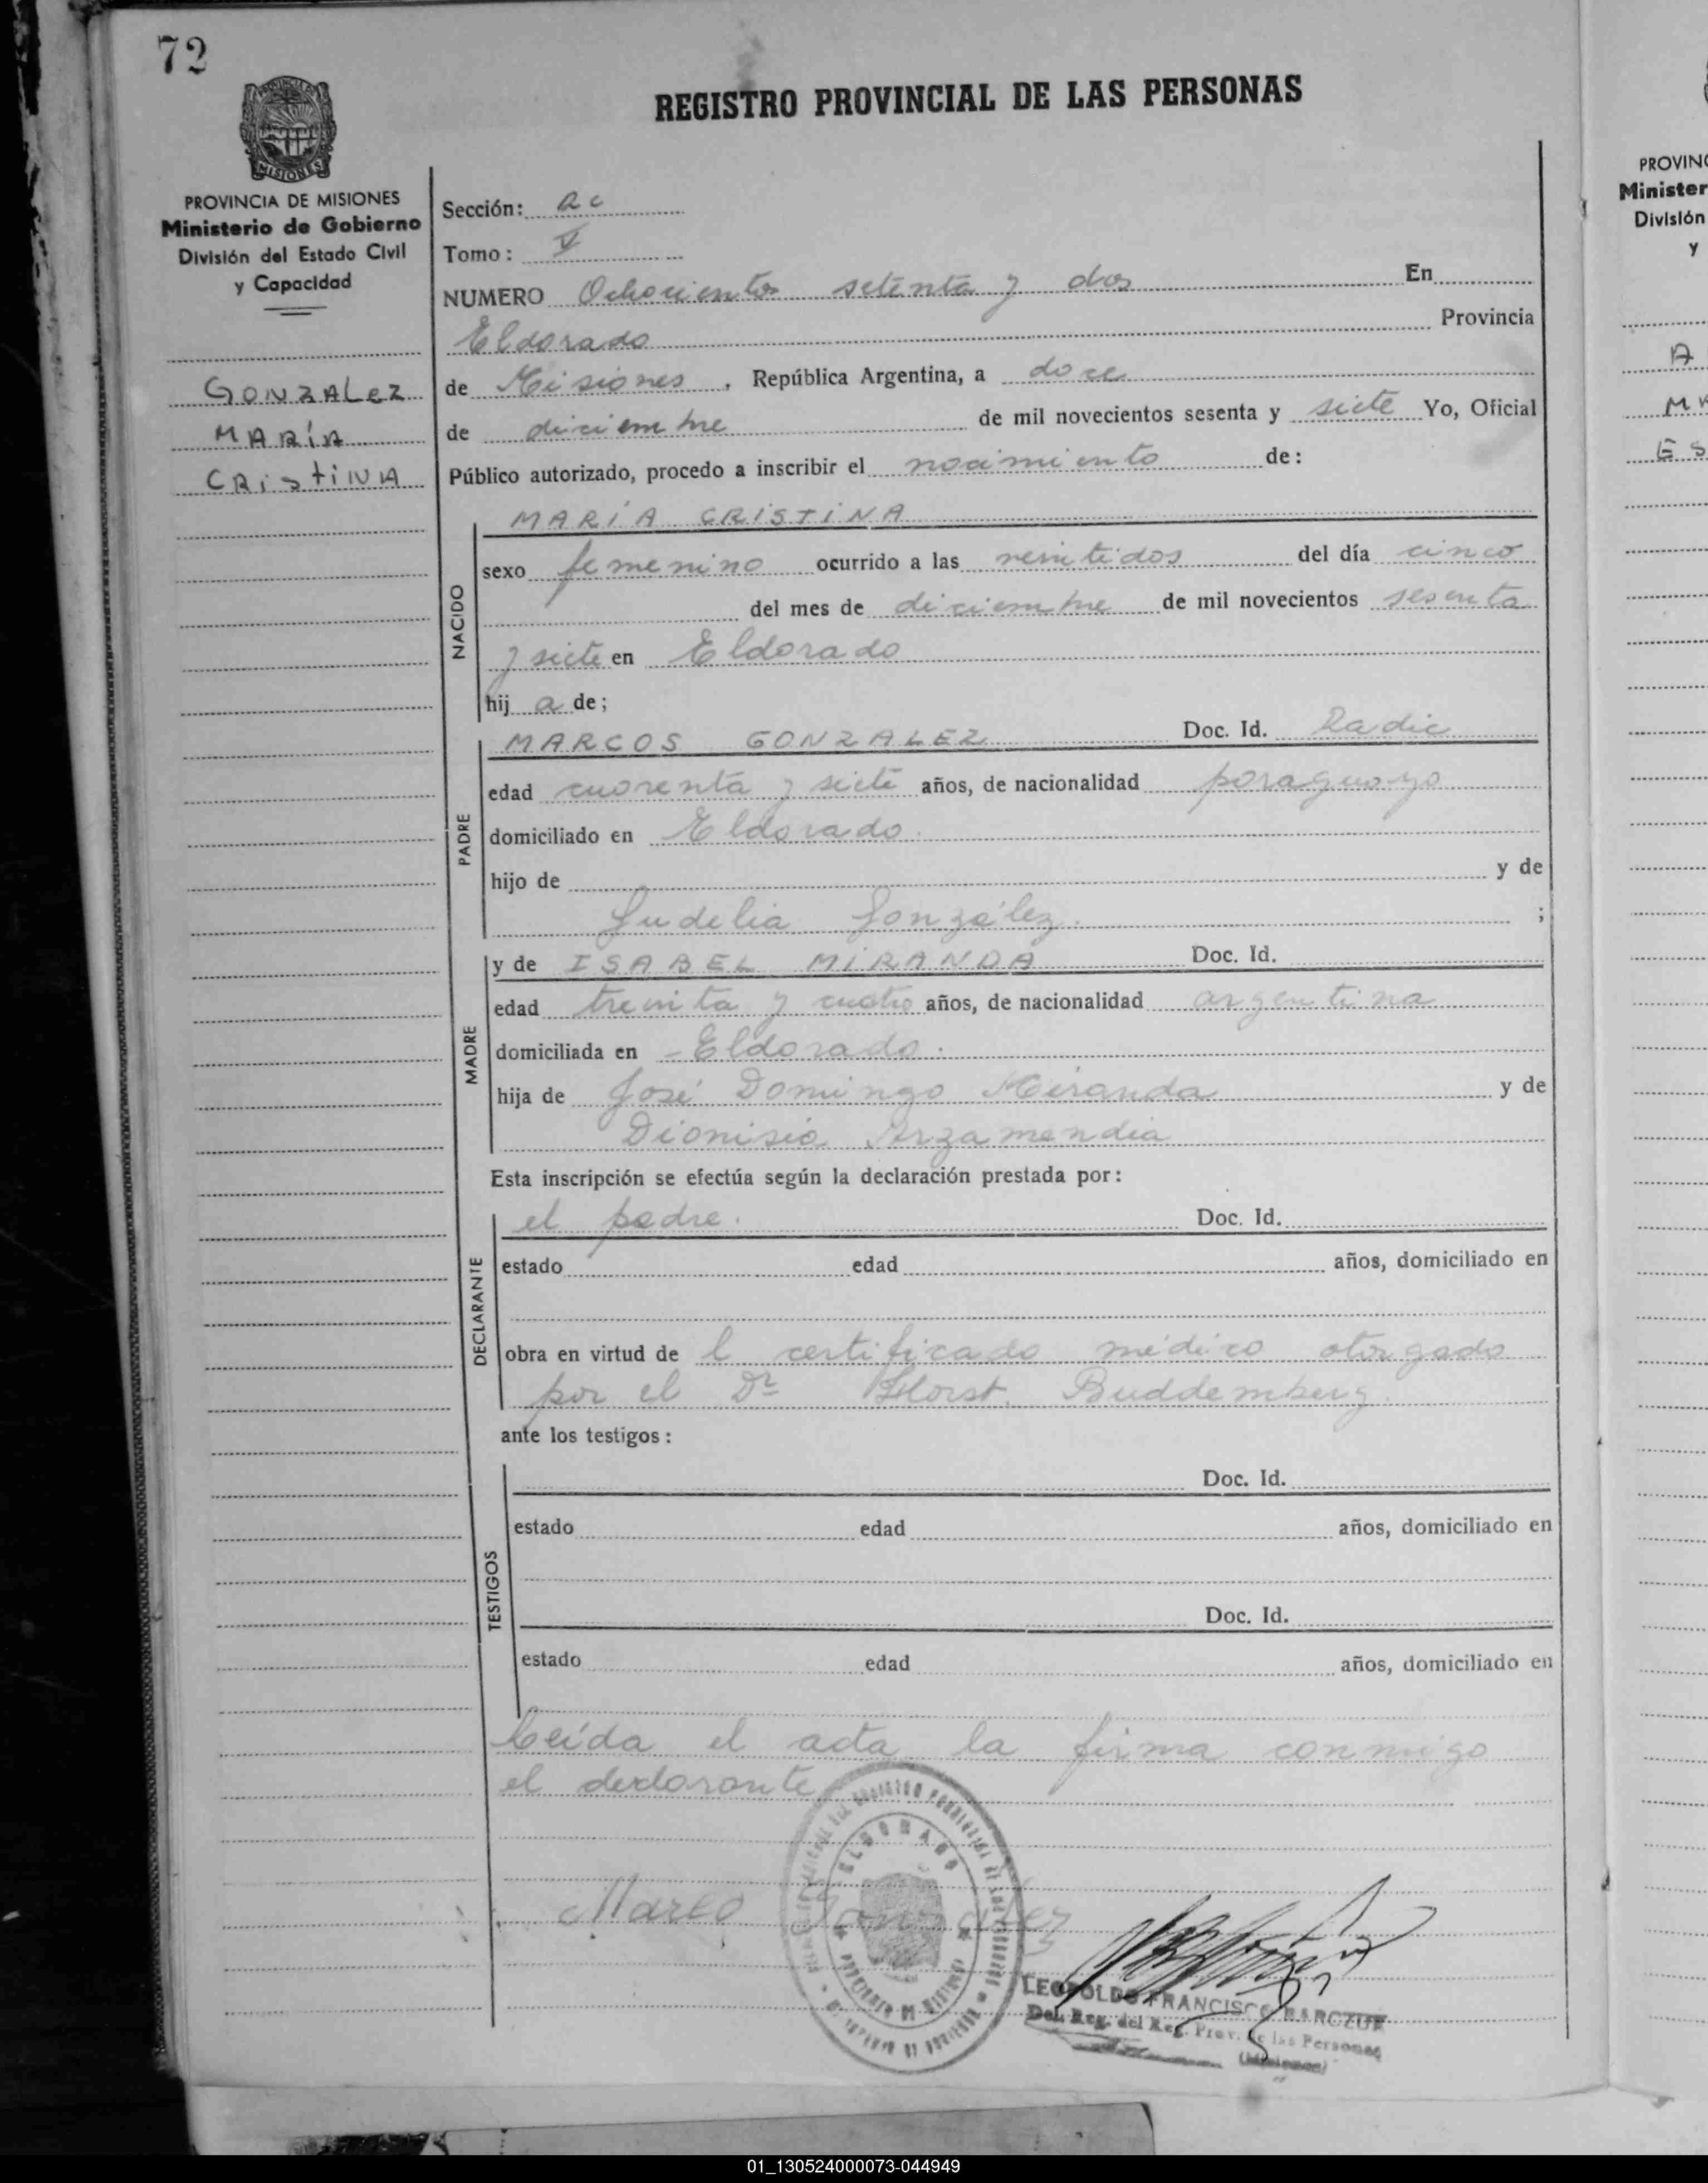 72
REGISTRO PROVINCIAL DE LAS PERSONAS
MISIONES
PROVINCIA DE MISIONES
Ministerio de Gobierno
División del Estado Civil
y Capacidad
GONZALEZ
MARÍA
CRISTINA
Sección: ac
Tomo: V
NUMERO Ochocientos setenta y dos En
Eldorado Provincia
de Misiones, República Argentina, a doce
de diciembre de mil novecientos sesenta y siete Yo, Oficial
Público autorizado, procedo a inscribir el nacimiento de:
NACIDO
MARÍA CRISTINA
sexo femenino ocurrido a las veintidos del día cinco
del mes de diciembre de mil novecientos sesenta
y siete en Eldorado
hij a de;
PADRE
MARCOS GONZALEZ Doc. Id. Radic
edad cuarenta y siete años, de nacionalidad paraguayo
domiciliado en Eldorado.
hijo de y de
Ludelia González. ;
MADRE
y de ISABEL MIRANDA Doc. Id.
edad treinta y cuatro años, de nacionalidad argentina
domiciliada en - Eldorado.
hija de José Domingo Miranda y de
Dionisia Arzamendia
Esta inscripción se efectúa según la declaración prestada por:
DECLARANTE
el padre. Doc. Id.
estado edad años, domiciliado en
obra en virtud de l certificado médico otorgado
por el Dr Horst. Buddemberg.
ante los testigos:
TESTIGOS
Doc. Id.
estado edad años, domiciliado en
Doc. Id.
estado edad años, domiciliado en
Leída el acta la firma conmigo
el declarante
ELDORADO
Marco Gonzalez
LEOPOLDO FRANCISCO BARCZUK
Del. Reg. del Reg. Prov. de las Personas
(Misiones)
PROVINC
Minister
División
y
A
MA
ES
01_130524000073-044949